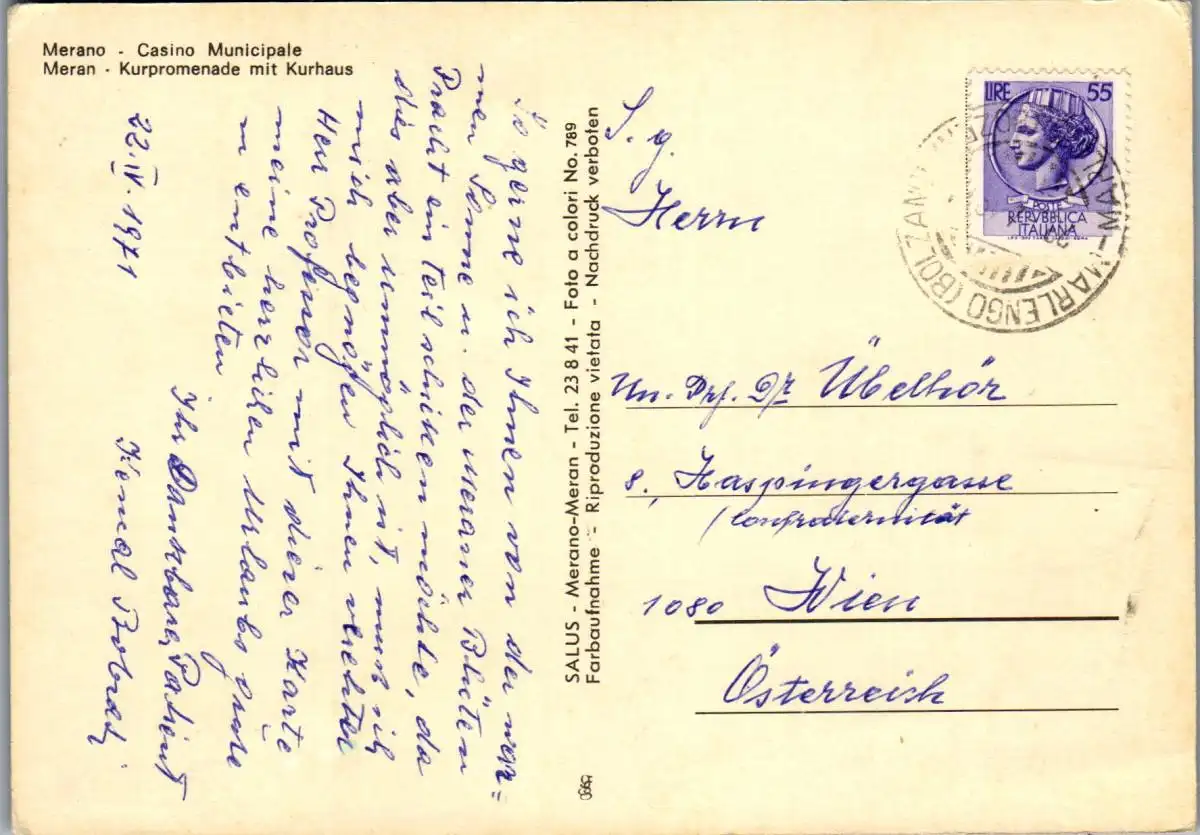 Merano - Casino Municipale
Meran - Kurpromenade mit Kurhaus
So gerne ich Ihnen von der war=
men Sonne u. der Meraner Blüten
Pracht ein Teil schicken möchte, da
dies aber unmöglich ist, muss ich
mich begnügen Ihnen verehter
Herr Professor mit dieser Karte
meine herzlichen Urlaubs grüsse
zu entbieten
Ihr Dankbarer Patient
22.IV.1971
Kemal
SALUS - Merano-Meran - Tel. 23 8 41 - Foto a colori No. 789
Farbaufnahme - Riproduzione vietata - Nachdruck verboten
S. g.
Herrn
Un. Prf. Dr Übelhör
8., Haspingergasse
(Confraternität
1080 Wien
Österreich
LIRE 55
POSTE
REPVBBLICA
ITALIANA
MARLENGO (BOLZANO)